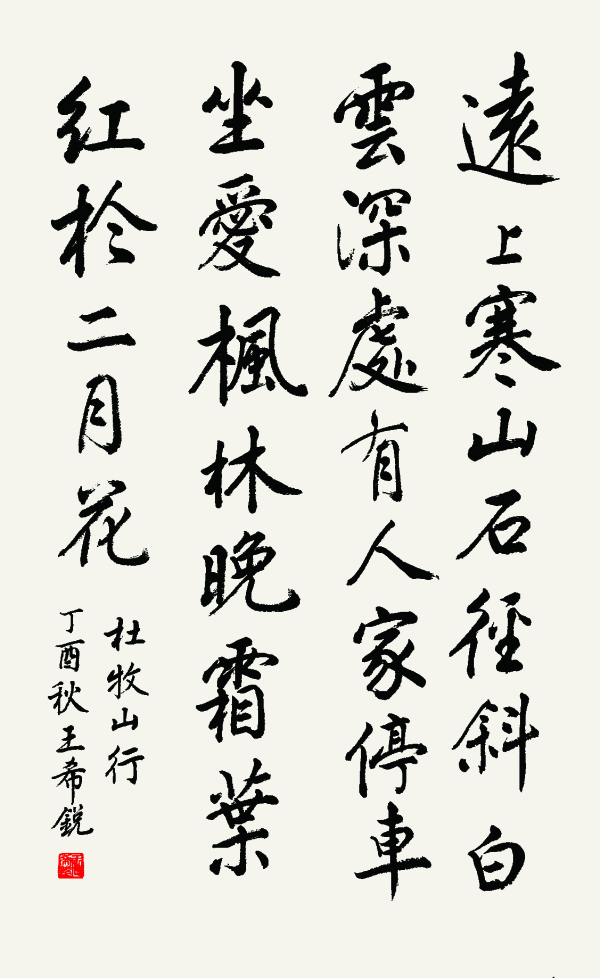 遠上寒山石徑斜白
雲深處有人家停車
坐愛楓林晚霜葉
紅於二月花
杜牧山行
丁酉秋王希鋭